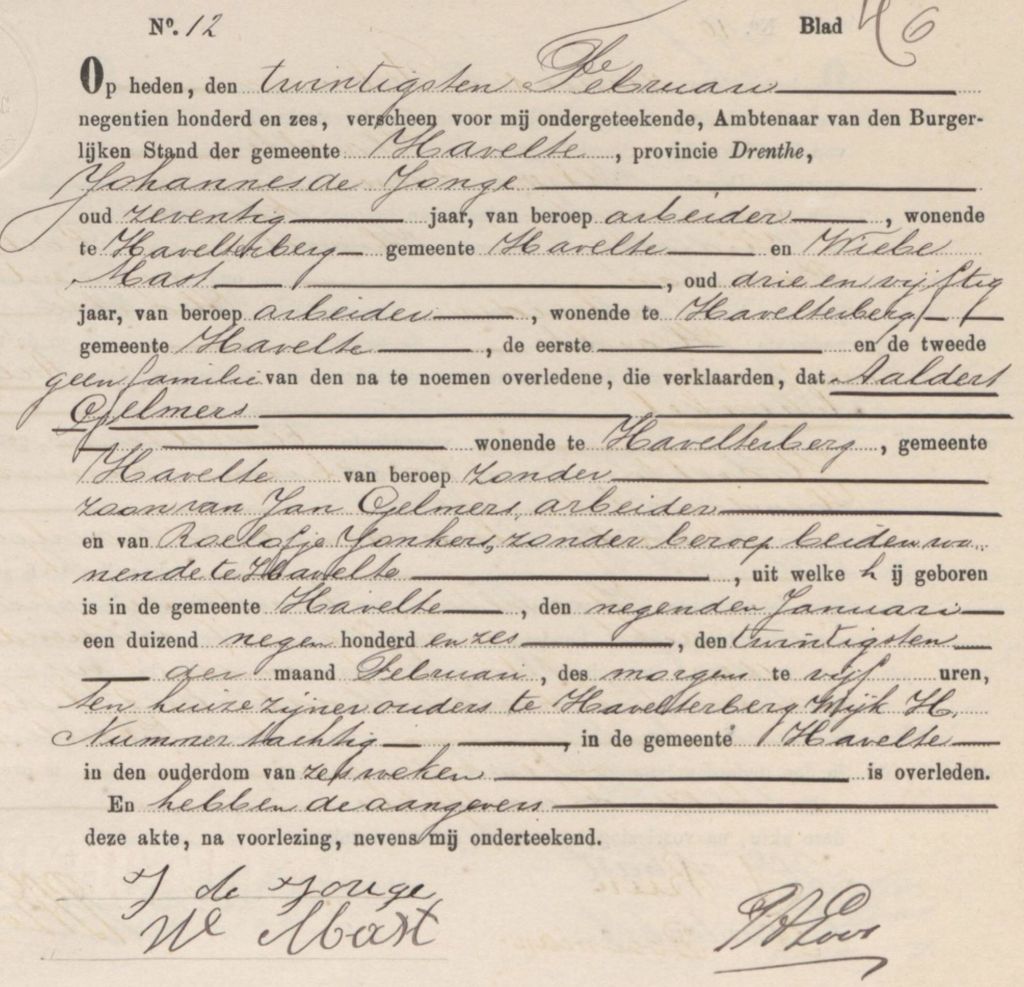 No. 12 Blad 46
Op heden, den twintigsten Februari
negentien honderd en zes, verscheen voor mij ondergeteekende, Ambtenaar van den Burger-
lijken Stand der gemeente Havelte, provincie Drenthe,
Johannes de Jonge
oud zeventig jaar, van beroep arbeider, wonende
te Havelterberg gemeente Havelte en Wiebe
Mast, oud drie en vijftig
jaar, van beroep arbeider, wonende te Havelterberg
gemeente Havelte, de eerste en de tweede
geen familie van den na te noemen overledene, die verklaarden, dat Aaldert
Gjelmers
wonende te Havelterberg, gemeente
Havelte van beroep zonder
zoon van Jan Gjelmers, arbeider
en van Roelofje Jonkers, zonder beroep beiden wo-
nende te Havelte, uit welke hij geboren
is in de gemeente Havelte, den negenden Januari
een duizend negen honderd en zes, den twintigsten
der maand Februari, des morgens te vijf uren,
ten huize zijner ouders te Havelterberg Wijk H.
Nummer tachtig, in de gemeente Havelte
in den ouderdom van zes weken is overleden.
En hebben de aangevers
deze akte, na voorlezing, nevens mij onderteekend.
J de Jonge
W Mast